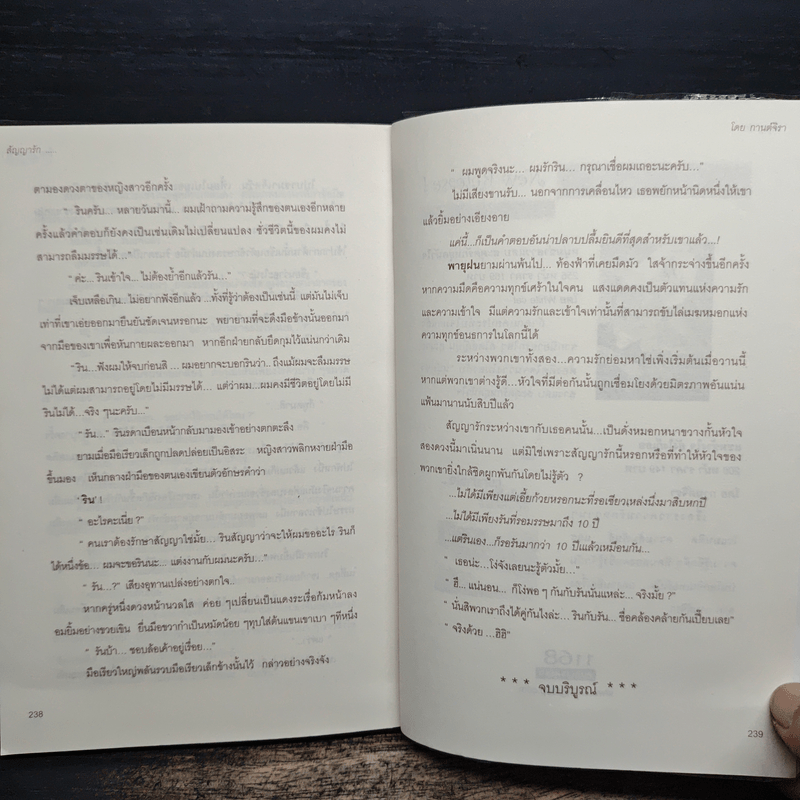 สัญญารัก ....
ตามองดวงตาของหญิงสาวอีกครั้ง
" รินครับ... หลายวันมานี้... ผมเฝ้าถามความรู้สึกของตนเองอีกหลาย
ครั้งแล้วคำตอบก็ยังคงเป็นเช่นเดิมไม่เปลี่ยนแปลง ชั่วชีวิตนี้ของผมคงไม่
สามารถลืมมรรษได้..."
" ค่ะ... รินเข้าใจ... ไม่ต้องย้ำอีกแล้วรัน..."
เจ็บเหลือเกิน.. ไม่อยากฟังอีกแล้ว ...ทั้งที่รู้ว่าต้องเป็นเช่นนี้ แต่มันไม่เจ็บ
เท่าที่เขาเอ่ยออกมายืนยันชัดเจนหรอกนะ พยายามที่จะดึงมือข้างนั้นออกมา
จากมือของเขาเพื่อหันกายผละออกมา หากอีกฝ่ายกลับยึดกุมไว้แน่นกว่าเดิม
" ริน...ฟังผมให้จบก่อนสิ ... ผมอยากจะบอกรินว่า.. ถึงแม้ผมจะลืมมรรษ
ไม่ได้แต่ผมสามารถอยู่โดยไม่มีมรรษได้... แต่ว่าผม...ผมคงมีชีวิตอยู่โดยไม่มี
รินไม่ได้...จริง ๆนะครับ..."
" รัน..." รินรดาเบือนหน้ากลับมามองเข้าอย่างตกตะลึง
ยามเมื่อมือเรียวเล็กถูกปลดปล่อยเป็นอิสระ หญิงสาวพลิกหงายฝ่ามือ
ขึ้นมอง เห็นกลางฝ่ามือของตนเองเขียนตัวอักษรคำว่า
'ริน' !
" อะไรคะเนี่ย ? "
" คนเราต้องรักษาสัญญาใช่มั้ย... รินสัญญาว่าจะให้ผมขออะไร รินก็
ได้หนึ่งข้อ... ผมจะขอรินนะ... แต่งงานกับผมนะครับ..."
" รัน...?" เสียงอุทานเปล่งอย่างตกใจ..
หากครู่หนึ่งดวงหน้านวลใส ค่อย ๆเปลี่ยนเป็นแดงระเรื่อก้มหน้าลง
อมยิ้มอย่างขวยเขิน ยื่นมือขวากำเป็นหมัดน้อย ๆทุบใส่ต้นแขนเขาเบา ๆทีหนึ่ง
" รันบ้า... ชอบล้อเค้าอยู่เรื่อย..."
มือเรียวใหญ่พลันรวบมือเรียวเล็กข้างนั้นไว้ กล่าวอย่างจริงจัง
238
โดย กานต์จิรา
" ผมพูดจริงนะ... ผมรักริน... กรุณาเชื่อผมเถอะนะครับ..."
ไม่มีเสียงขานรับ... นอกจากการเคลื่อนไหว เธอพยักหน้านิดหนึ่งให้เขา
แล้วยิ้มอย่างเอียงอาย
แค่นี้ ...ก็เป็นคำตอบอันน่าปลาบปลื้มยินดีที่สุดสำหรับเขาแล้ว...!
พายุฝนยามผ่านพ้นไป... ท้องฟ้าที่เคยมืดมัว ใสจ้ากระจ่างขึ้นอีกครั้ง
หากความมืดคือความทุกข์เศร้าในใจคน แสงแดดคงเป็นตัวแทนแห่งความรัก
และความเข้าใจ มีแต่ความรักและเข้าใจเท่านั้นที่สามารถขับไล่เมฆหมอกแห่ง
ความทุกข์อนธการในโลกนี้ได้
ระหว่างพวกเขาทั้งสอง...ความรักย่อมหาใช่เพิ่งเริ่มต้นเมื่อวานนี้
หากแต่พวกเขาต่างรู้ดี...หัวใจที่มีต่อกันนั้นถูกเชื่อมโยงด้วยมิตรภาพอันแน่น
แฟ้นมานานนับสิบปีแล้ว
สัญญารักระหว่างเขากับเธอคนนั้น...เป็นดั่งหมอกหนาขวางกั้นหัวใจ
สองดวงนี้มาเนิ่นนาน แต่มิใช่เพราะสัญญารักนี้หรอกหรือที่ทำให้หัวใจของ
พวกเขายิ่งใกล้ชิดผูกพันกันโดยไม่รู้ตัว ?
...ไม่ได้มีเพียงแต่เอี้ยก้วยหรอกนะที่รอเซียวเหล่งนึ่งมาสิบหกปี
...ไม่ได้มีเพียงรันที่รอมรรษมาถึง 10 ปี
...แต่รินเอง...ก็รอรันมากว่า 10 ปีแล้วเหมือนกัน...
" เธอน่ะ...โง่จังเลยนะรู้ตัวมั้ย..."
" ฮึ... แน่นอน... ก็โง่พอ ๆ กันกับรันนั่นแหล่ะ... จริงมั้ย ?"
" นั่นสิพวกเราถึงได้คู่กันไงล่ะ... รินกับรัน... ชื่อคล้องคล้ายกันเปี๊ยบเลย"
" จริงด้วย ...ฮิฮิ"
* * * จบบริบูรณ์ * * *
239